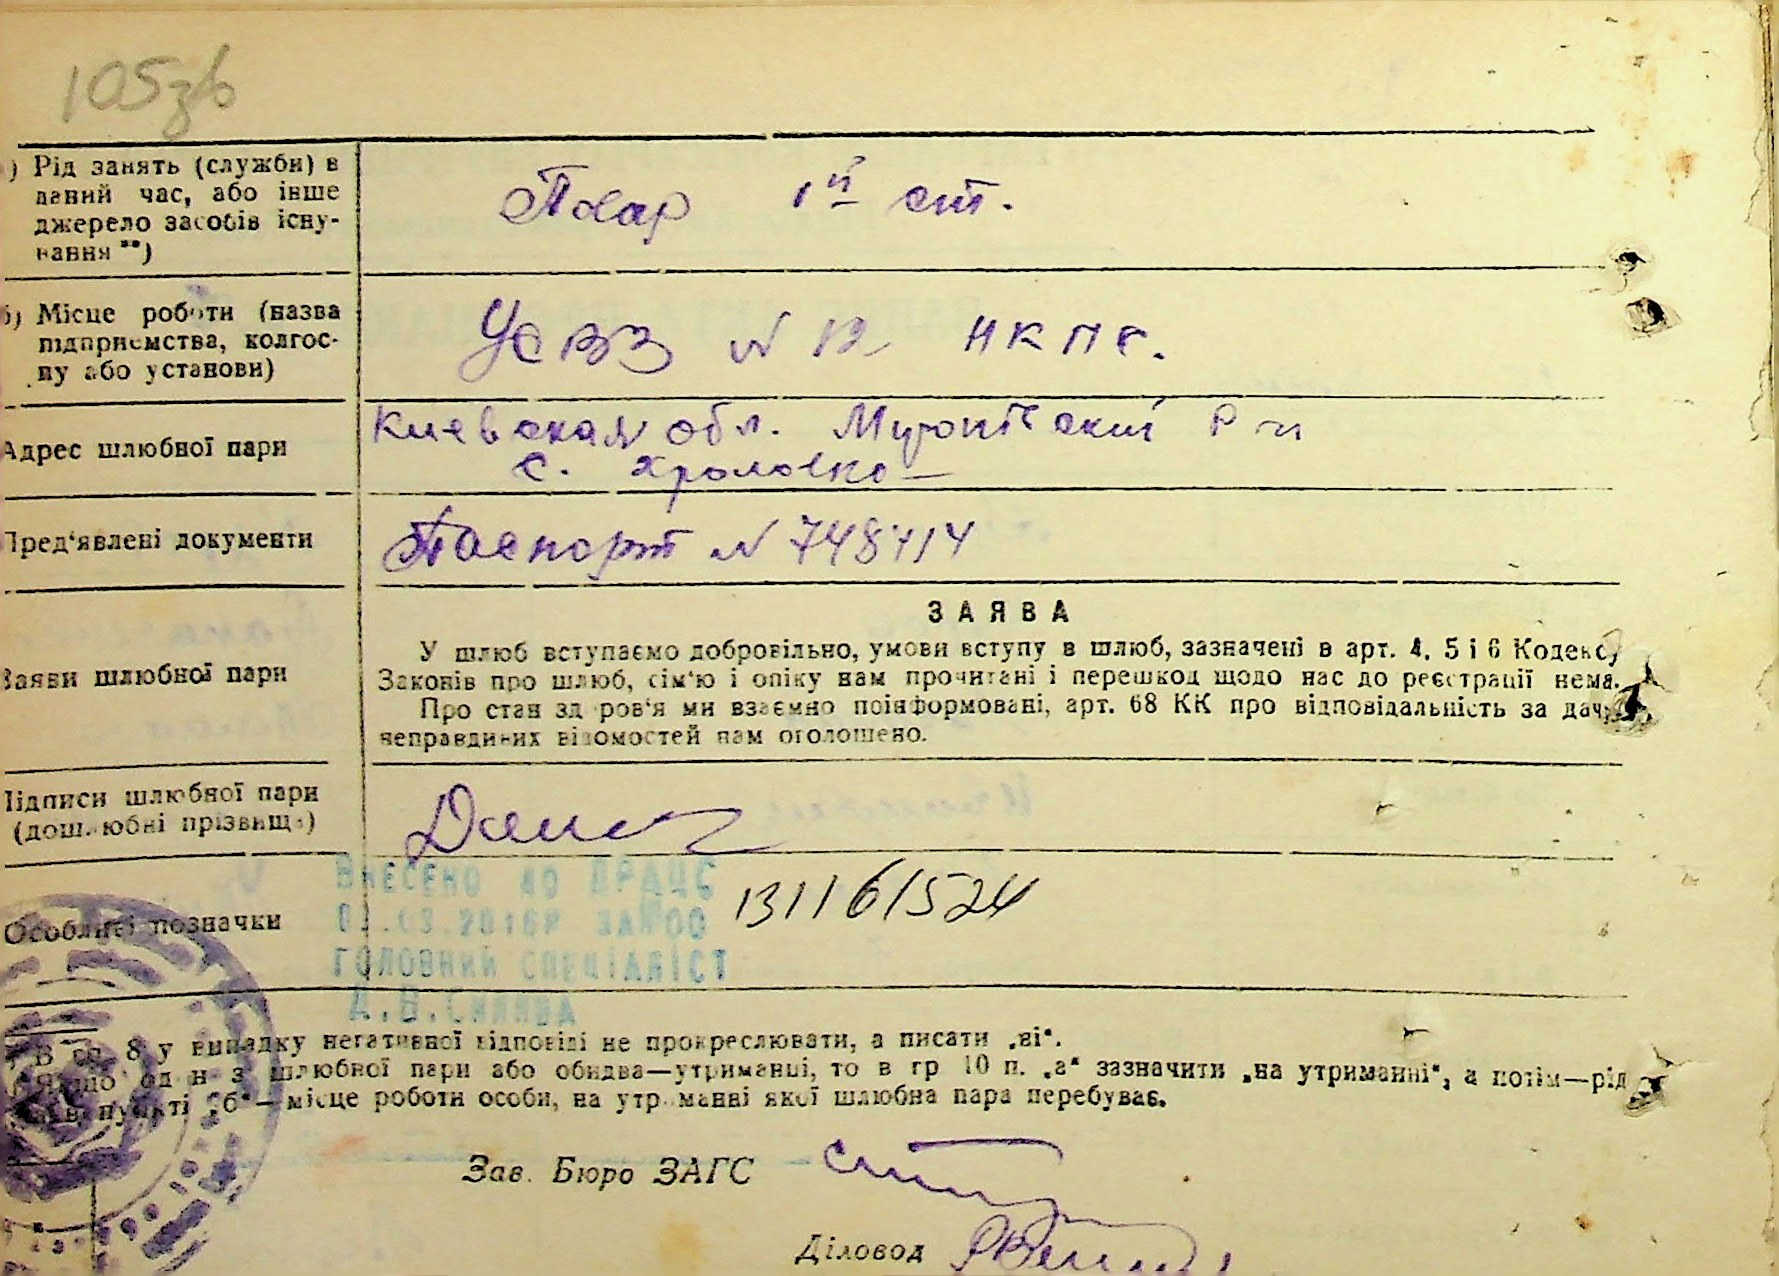 105зв
) Рід занять (служби) в
даний час, або інше
джерело засобів існу-
вання **)
Повар 1й ст.
б) Місце роботи (назва
підприємства, колгос-
пу або установи)
УСВЗ № 12 НКПС.
Адрес шлюбної пари
Киевская обл.
с.
Пред'явлені документи
Паспорт № 748414
ЗАЯВА
Заяви шлюбної пари
У шлюб вступаємо добровільно, умови вступу в шлюб, зазначені в арт. 4, 5 і 6 Кодексу
Законів про шлюб, сім'ю і опіку нам прочитані і перешкод щодо нас до реєстрації нема.
Про стан здоров'я ми взаємно поінформовані, арт. 68 КК про відповідальність за дачу
неправдивих відомостей нам оголошено.
Підписи шлюбної пари
(дошлюбні прізвища)
Особливі позначки
ВНЕСЕНО до ДРАЦС
ГОЛОВНИЙ СПЕЦІАЛІСТ
131161524
В гр. 8 у випадку негативної відповіді не прокреслювати, а писати „ні“.
Якщо один з шлюбної пари або обидва—утриманці, то в гр 10 п. „а“ зазначити „на утриманні“, а потім—рід
в пункті „б“—місце роботи особи, на утриманні якої шлюбна пара перебуває.
Зав. Бюро ЗАГС
Діловод